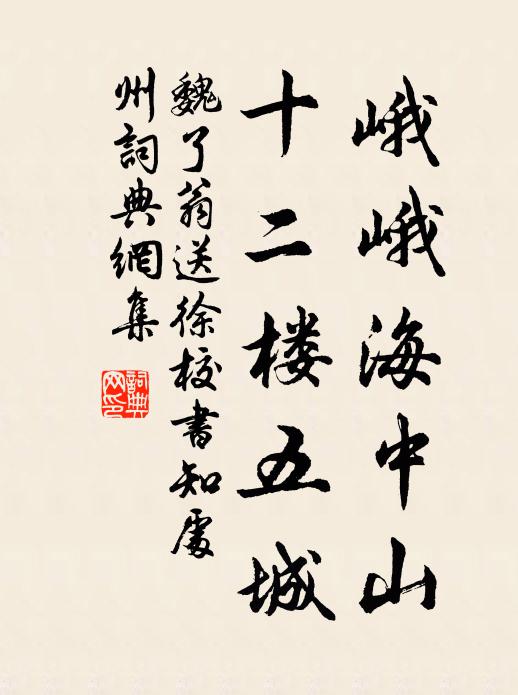 峨峨海中山
十二楼五城
魏了翁送徐校书知处
州词典網集
詞典網印